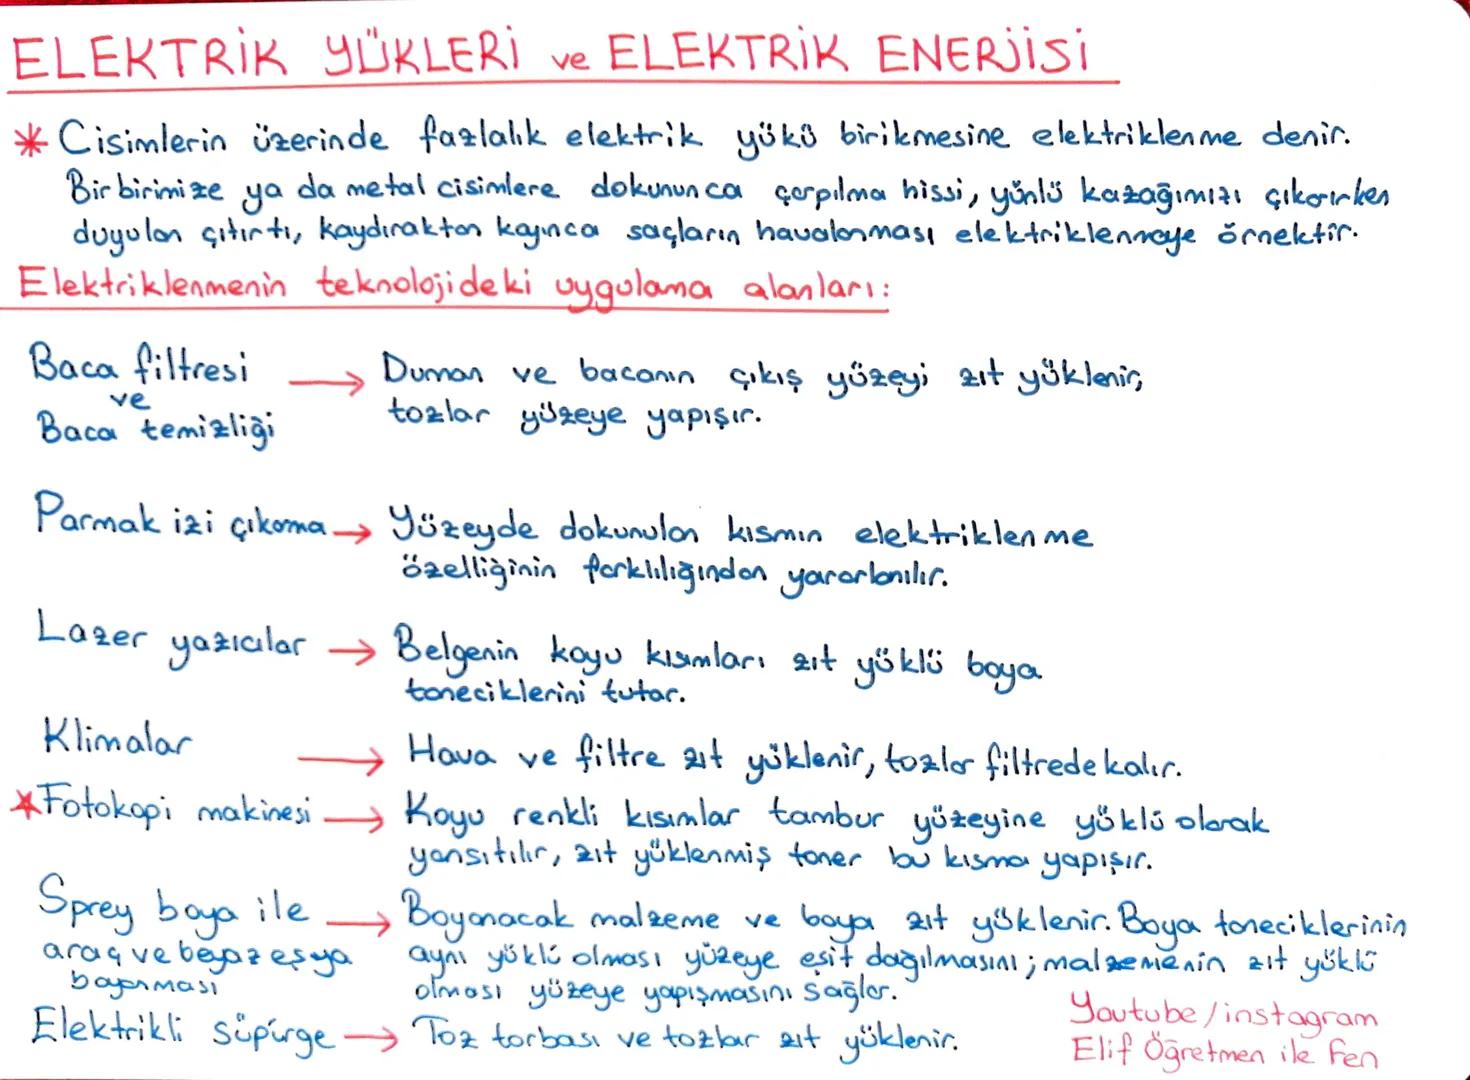 ELEKTRİK YÜKLERİ ve ELEKTRİK ENERJİSİ
* Cisimlerin üzerinde fazlalık elektrik yükü birikmesine elektriklenme denir.
Birbirimize ya da metal cisimlere dokununca çarpılma hissi, yünlü kazağımızı çıkarırken
duyulan çıtırtı, kaydıraktan kayınca saçların havalanması elektriklenmeye örnektir.
Elektriklenmenin teknolojideki uygulama alanları:
Baca filtresi
ve
Baca temizliği
→ Duman ve bacanın çıkış yüzeyi zıt yüklenir,
tozlar yüzeye yapışır.
Parmak izi çıkama → Yüzeyde dokunulan kısmın elektriklenme
özelliğinin farklılığından yararlanılır.
Lazer yazıcılar → Belgenin koyu kısımları zıt yüklü boya
taneciklerini tutar.
Klimalar → Hava ve filtre zıt yüklenir, tozlar filtrede kalır.
* Fotokopi makinesi → Koyu renkli kısımlar tambur yüzeyine yüklü olarak
yansıtılır, zıt yüklenmiş toner bu kısma yapışır.
Sprey boya ile
araç ve beyaz eşya
boyanması
→ Boyanacak malzeme ve boya zıt yüklenir. Boya taneciklerinin
aynı yüklü olması yüzeye eşit dağılmasını; malzemenin zıt yüklü
olması yüzeye yapışmasını sağlar.
Elektrikli süpürge → Toz torbası ve tozlar zıt yüklenir.
Youtube/instagram
Elif Öğretmen ile Fen